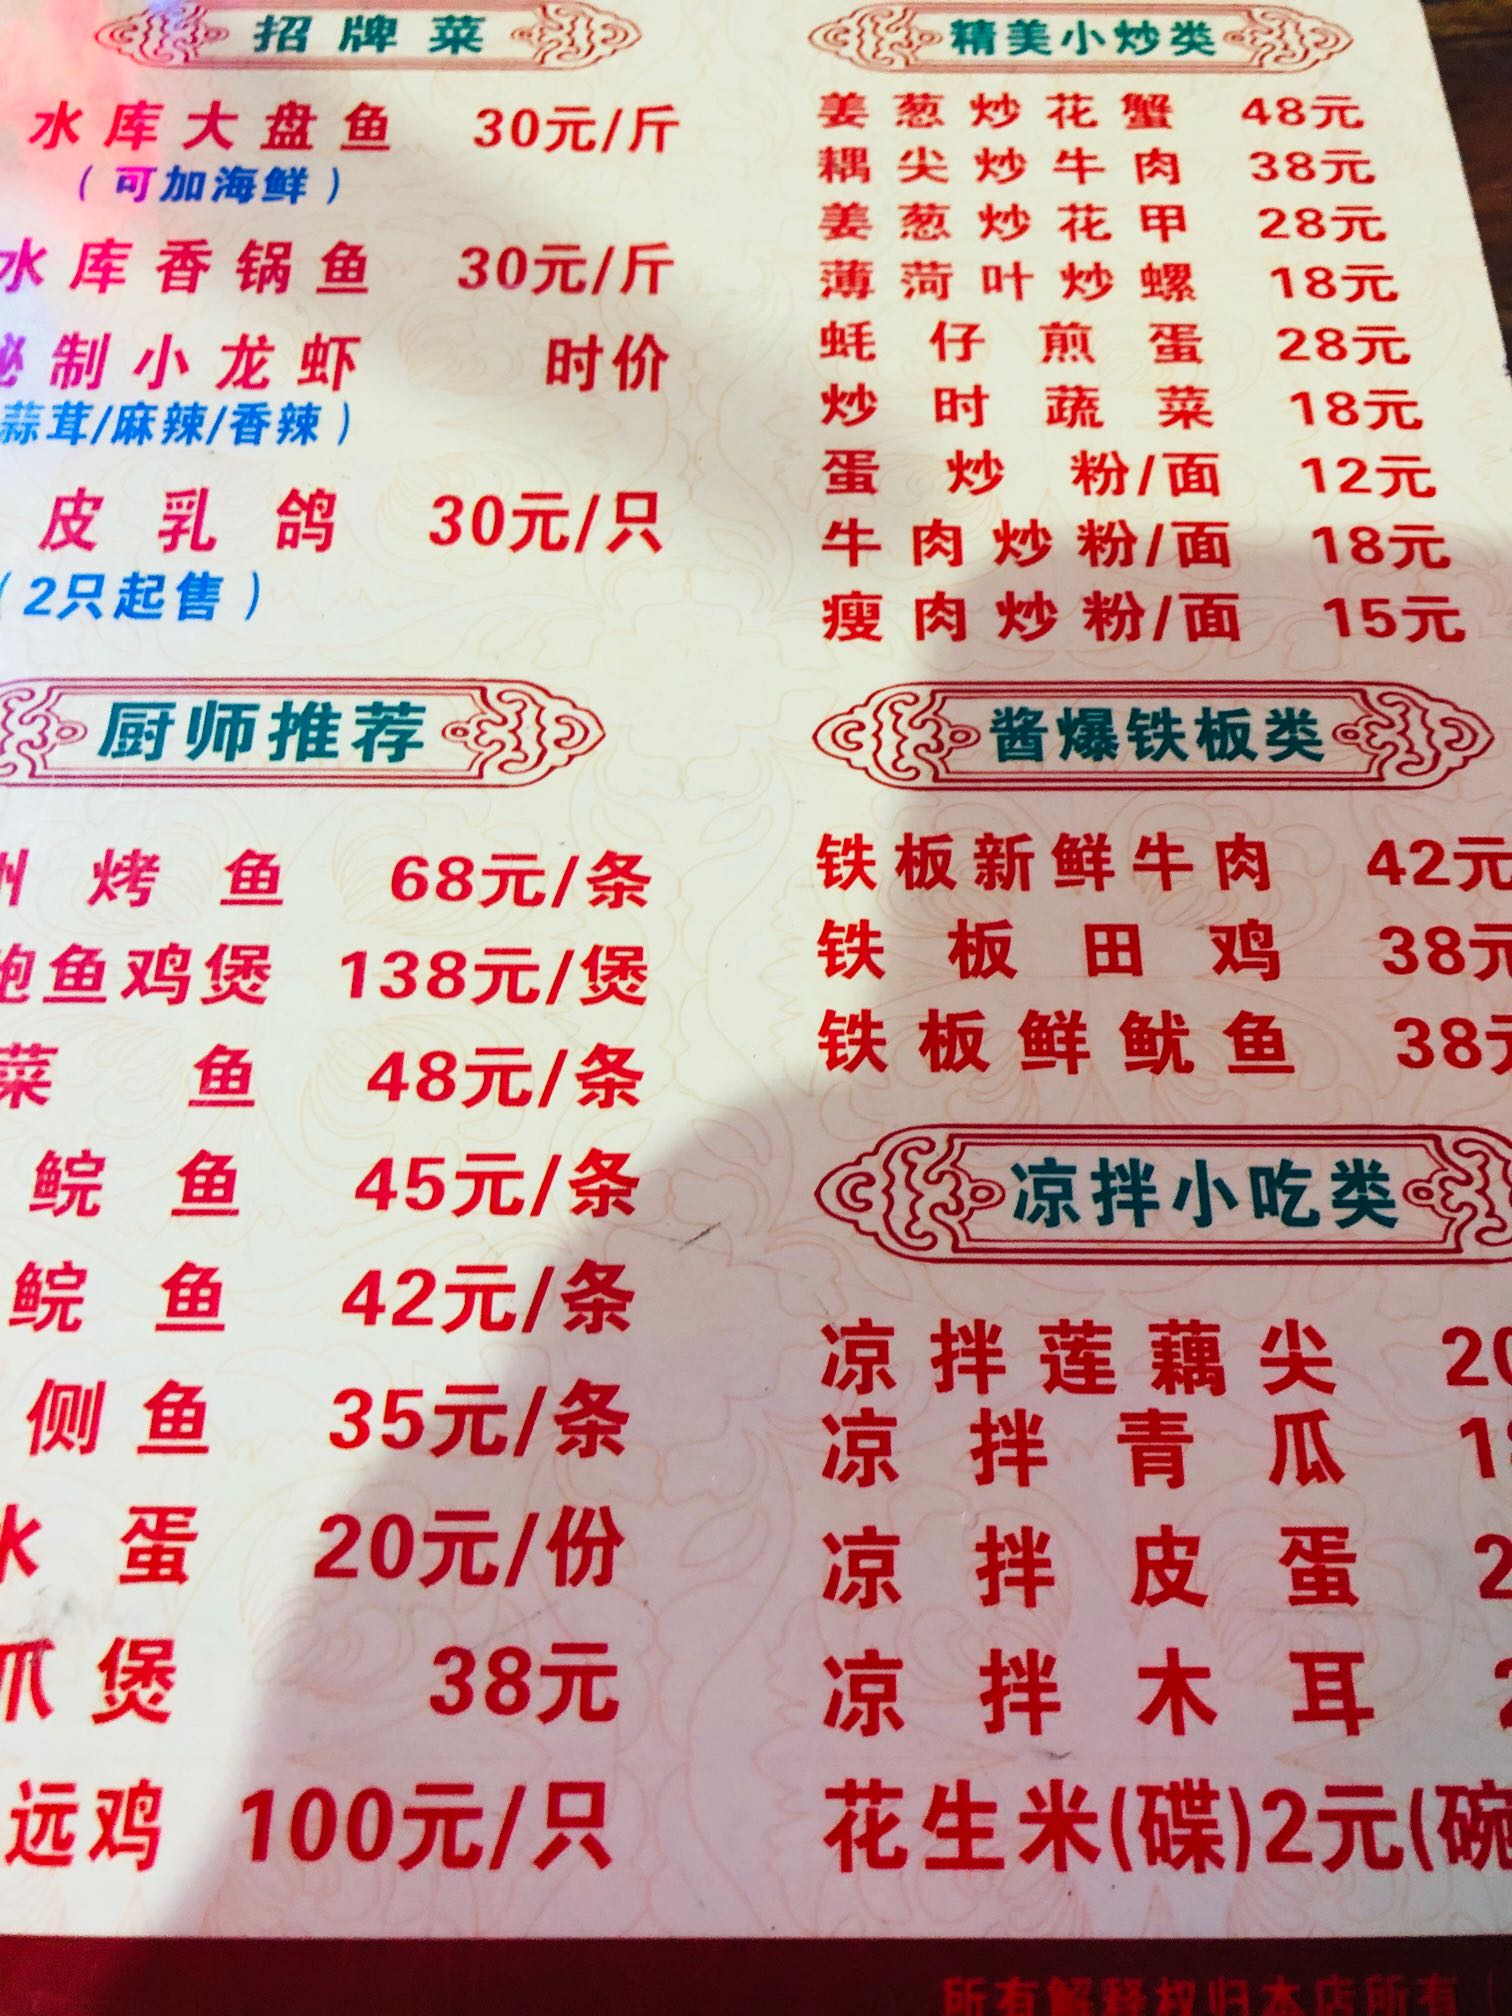 招牌菜
水库大盘鱼 30元/斤
（可加海鲜）
水库香锅鱼 30元/斤
秘制小龙虾 时价
蒜茸/麻辣/香辣）
皮乳鸽 30元/只
（2只起售）
厨师推荐
州烤鱼 68元/条
鲍鱼鸡煲 138元/煲
菜鱼 48元/条
鲩鱼 45元/条
鲩鱼 42元/条
侧鱼 35元/条
水蛋 20元/份
爪煲 38元
远鸡 100元/只
精美小炒类
姜葱炒花蟹 48元
耦尖炒牛肉 38元
姜葱炒花甲 28元
薄荷叶炒螺 18元
蚝仔煎蛋 28元
炒时蔬菜 18元
蛋炒粉/面 12元
牛肉炒粉/面 18元
瘦肉炒粉/面 15元
酱爆铁板类
铁板新鲜牛肉 42元
铁板田鸡 38元
铁板鲜鱿鱼 38元
凉拌小吃类
凉拌莲藕尖 20
凉拌青瓜
凉拌皮蛋
凉拌木耳
花生米(碟)2元(碗
所有解释权归本店所有